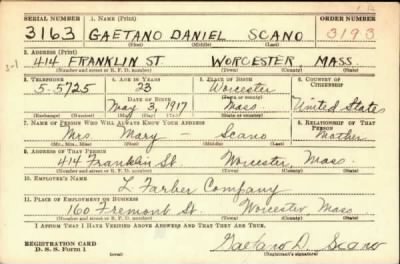 SERIAL NUMBER 1. NAME (Print) ORDER NUMBER
3163 GAETANO DANIEL SCANO 3193
(First) (Middle) (Last)
2. ADDRESS (Print)
414 FRANKLIN ST. WORCESTER, MASS.
(Number and street or R. F. D. number) (Town) (County) (State)
3. TELEPHONE 4. AGE IN YEARS 5. PLACE OF BIRTH 6. COUNTRY OF CITIZENSHIP
5-5725 23 Worcester
DATE OF BIRTH (Town or county)
May 3, 1917 Mass United States
(Exchange) (Number) (Mo.) (Day) (Yr.) (State or country)
7. NAME OF PERSON WHO WILL ALWAYS KNOW YOUR ADDRESS 8. RELATIONSHIP OF THAT PERSON
Mrs Mary - Scano Mother
(Mr., Mrs., Miss) (First) (Middle) (Last)
9. ADDRESS OF THAT PERSON
414 Franklin St. Worcester, Mass.
(Number and street or R. F. D. number) (Town) (County) (State)
10. EMPLOYER'S NAME
L. Farber Company
11. PLACE OF EMPLOYMENT OR BUSINESS
160 Fremont St. Worcester Mass.
(Number and street or R. F. D. number) (Town) (County) (State)
I AFFIRM THAT I HAVE VERIFIED ABOVE ANSWERS AND THAT THEY ARE TRUE.
REGISTRATION CARD
D. S. S. Form 1 (over) Gaetano D. Scano
(Registrant's signature)